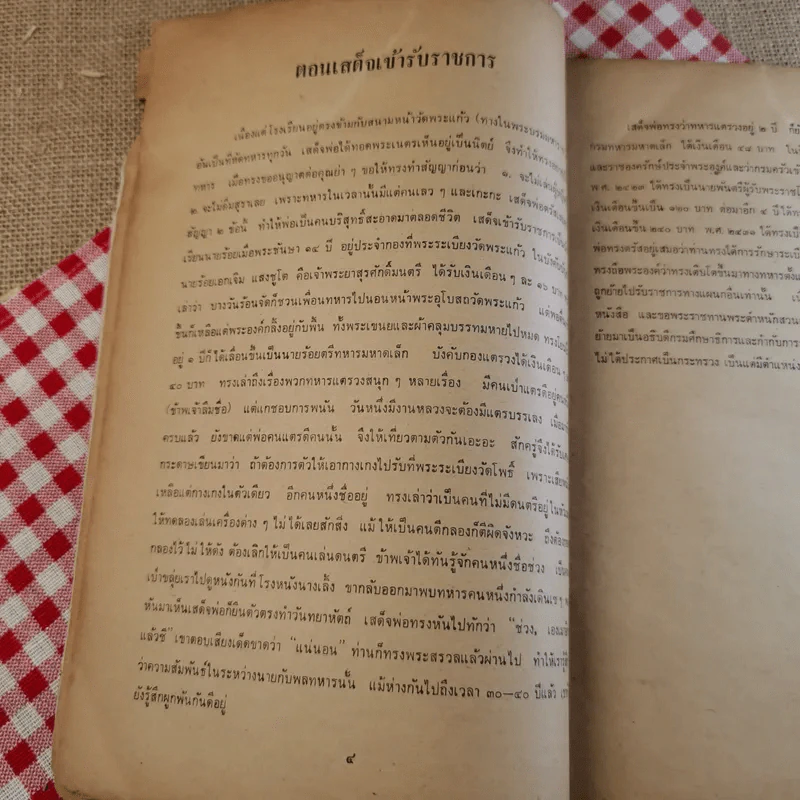 ตอนเสด็จเข้ารับราชการ
เนื่องแต่โรงเรียนอยู่ตรงข้ามกับสนามหน้าวัดพระแก้ว (ทางในพระบรมมหา
อันเป็นที่หัดทหารทุกวัน เสด็จพ่อได้ทอดพระเนตรเห็นอยู่เป็นนิตย์ จึงทำให้ทรง
ทหาร เมื่อทรงขออนุญาตต่อคุณย่า ๆ ขอให้ทรงทำสัญญาก่อนว่า ๑. จะไม่เล่น
๒ จะไม่ดื่มสุราเลย เพราะทหารในเวลานั้นมีแต่คนเลว ๆ และเกะกะ เสด็จพ่อตรัส
สัญญา ๒ ข้อนี้ ทำให้พ่อเป็นคนบริสุทธิ์สะอาดมาตลอดชีวิต เสด็จเข้ารับราชการเป็น
เรียนนายร้อยเมื่อพระชันษา ๑๔ ปี อยู่ประจำกองที่พระระเบียงวัดพระแก้ว ในบังคับ
นายร้อยเอกเจิม แสงชูโต คือเจ้าพระยาสุรศักดิ์มนตรี ได้รับเงินเดือน ๆ ละ ๑๖ บาท
เล่าว่า บางวันร้อนจัดก็ชวนเพื่อนทหารไปนอนหน้าพระอุโบสถวัดพระแก้ว แต่พอตื่น
ขึ้นก็เหลือแต่พระองค์กลิ้งอยู่กับพื้น ทั้งพระเขนยและผ้าคลุมบรรทมหายไปหมด ทรง
อยู่ ๑ ปีก็ได้เลื่อนขึ้นเป็นนายร้อยตรีทหารมหาดเล็ก บังคับกองแตรวงได้เงินเดือน ๆ
๔๐ บาท ทรงเล่าถึงเรื่องพวกทหารแตรวงสนุก ๆ หลายเรื่อง มีคนเป่าแตรดีอยู่คน
(ข้าพเจ้าลืมชื่อ) แต่แกชอบการพนัน วันหนึ่งมีงานหลวงจะต้องมีแตรบรรเลง เมื่อ
ครบแล้ว ยังขาดแต่พ่อคนแตรดีคนนั้น จึงให้เที่ยวตามตัวกันเอะอะ สักครู่จึงได้รับ
กระดาษเขียนมาว่า ถ้าต้องการตัวให้เอากางเกงไปรับที่พระระเบียงวัดโพธิ์ เพราะเสีย
เหลือแต่กางเกงในตัวเดียว อีกคนหนึ่งชื่ออยู่ ทรงเล่าว่าเป็นคนที่ไม่มีดนตรีอยู่ใน
ให้ทดลองเล่นเครื่องต่าง ๆ ไม่ได้เลยสักสิ่ง แม้ให้เป็นคนตีกลองก็ตีผิดจังหวะ ถึงต้อง
กลองไว้ไม่ให้ดัง ต้องเลิกให้เป็นคนเล่นดนตรี ข้าพเจ้าได้ทันรู้จักคนหนึ่งชื่อช่วง
เป่าขลุ่ยเราไปดูหนังกันที่โรงหนังนางเลิ้ง ขากลับออกมาพบทหารคนหนึ่งกำลังเดินเซ ๆ
หันมาเห็นเสด็จพ่อก็ยืนตัวตรงทำวันทยาหัตถ์ เสด็จพ่อทรงหันไปทักว่า "ช่วง,
แล้วซี" เขาตอบเสียงเด็ดขาดว่า "แน่นอน" ท่านก็ทรงพระสรวลแล้วผ่านไป ทำให้เรา
ว่าความสัมพันธ์ในระหว่างนายกับพลทหารนั้น แม้ห่างกันไปถึงเวลา ๓๐—๔๐ ปีแล้ว
ยังรู้สึกผูกพันกันดีอยู่
๙
เสด็จพ่อทรงว่าทหารแตรวงอยู่ ๒ ปี
กรมทหารมหาดเล็ก ได้เงินเดือน ๔๘ บาท
และราชองครักษ์ประจำพระองค์และว่ากรมครัว
พ.ศ. ๒๔๒๓ ได้ทรงเป็นนายพันตรีผู้รับพระราช
เงินเดือนขึ้นเป็น ๑๒๐ บาท ต่อมาอีก ๔ ปีได้
เงินเดือนขึ้น ๒๔๐ บาท พ.ศ. ๒๔๓๑ ได้ทรง
พ่อทรงตรัสอยู่เสมอว่าท่านทรงได้การรักษาระเบี
ทรงถือพระองค์ว่าทรงเติบโตขึ้นมาทางทหาร
ลูกย้ายไปรับราชการทางแผนกอื่นเท่านั้น
หนังสือ และขอพระราชทานพระตำหนักสวน
ย้ายมาเป็นอธิบดีกรมศึกษาธิการและกำกับการ
ไม่ได้ประกาศเป็นกระทรวง เป็นแต่มีตำแหน่ง